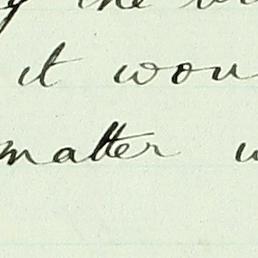 the
it wou
matter